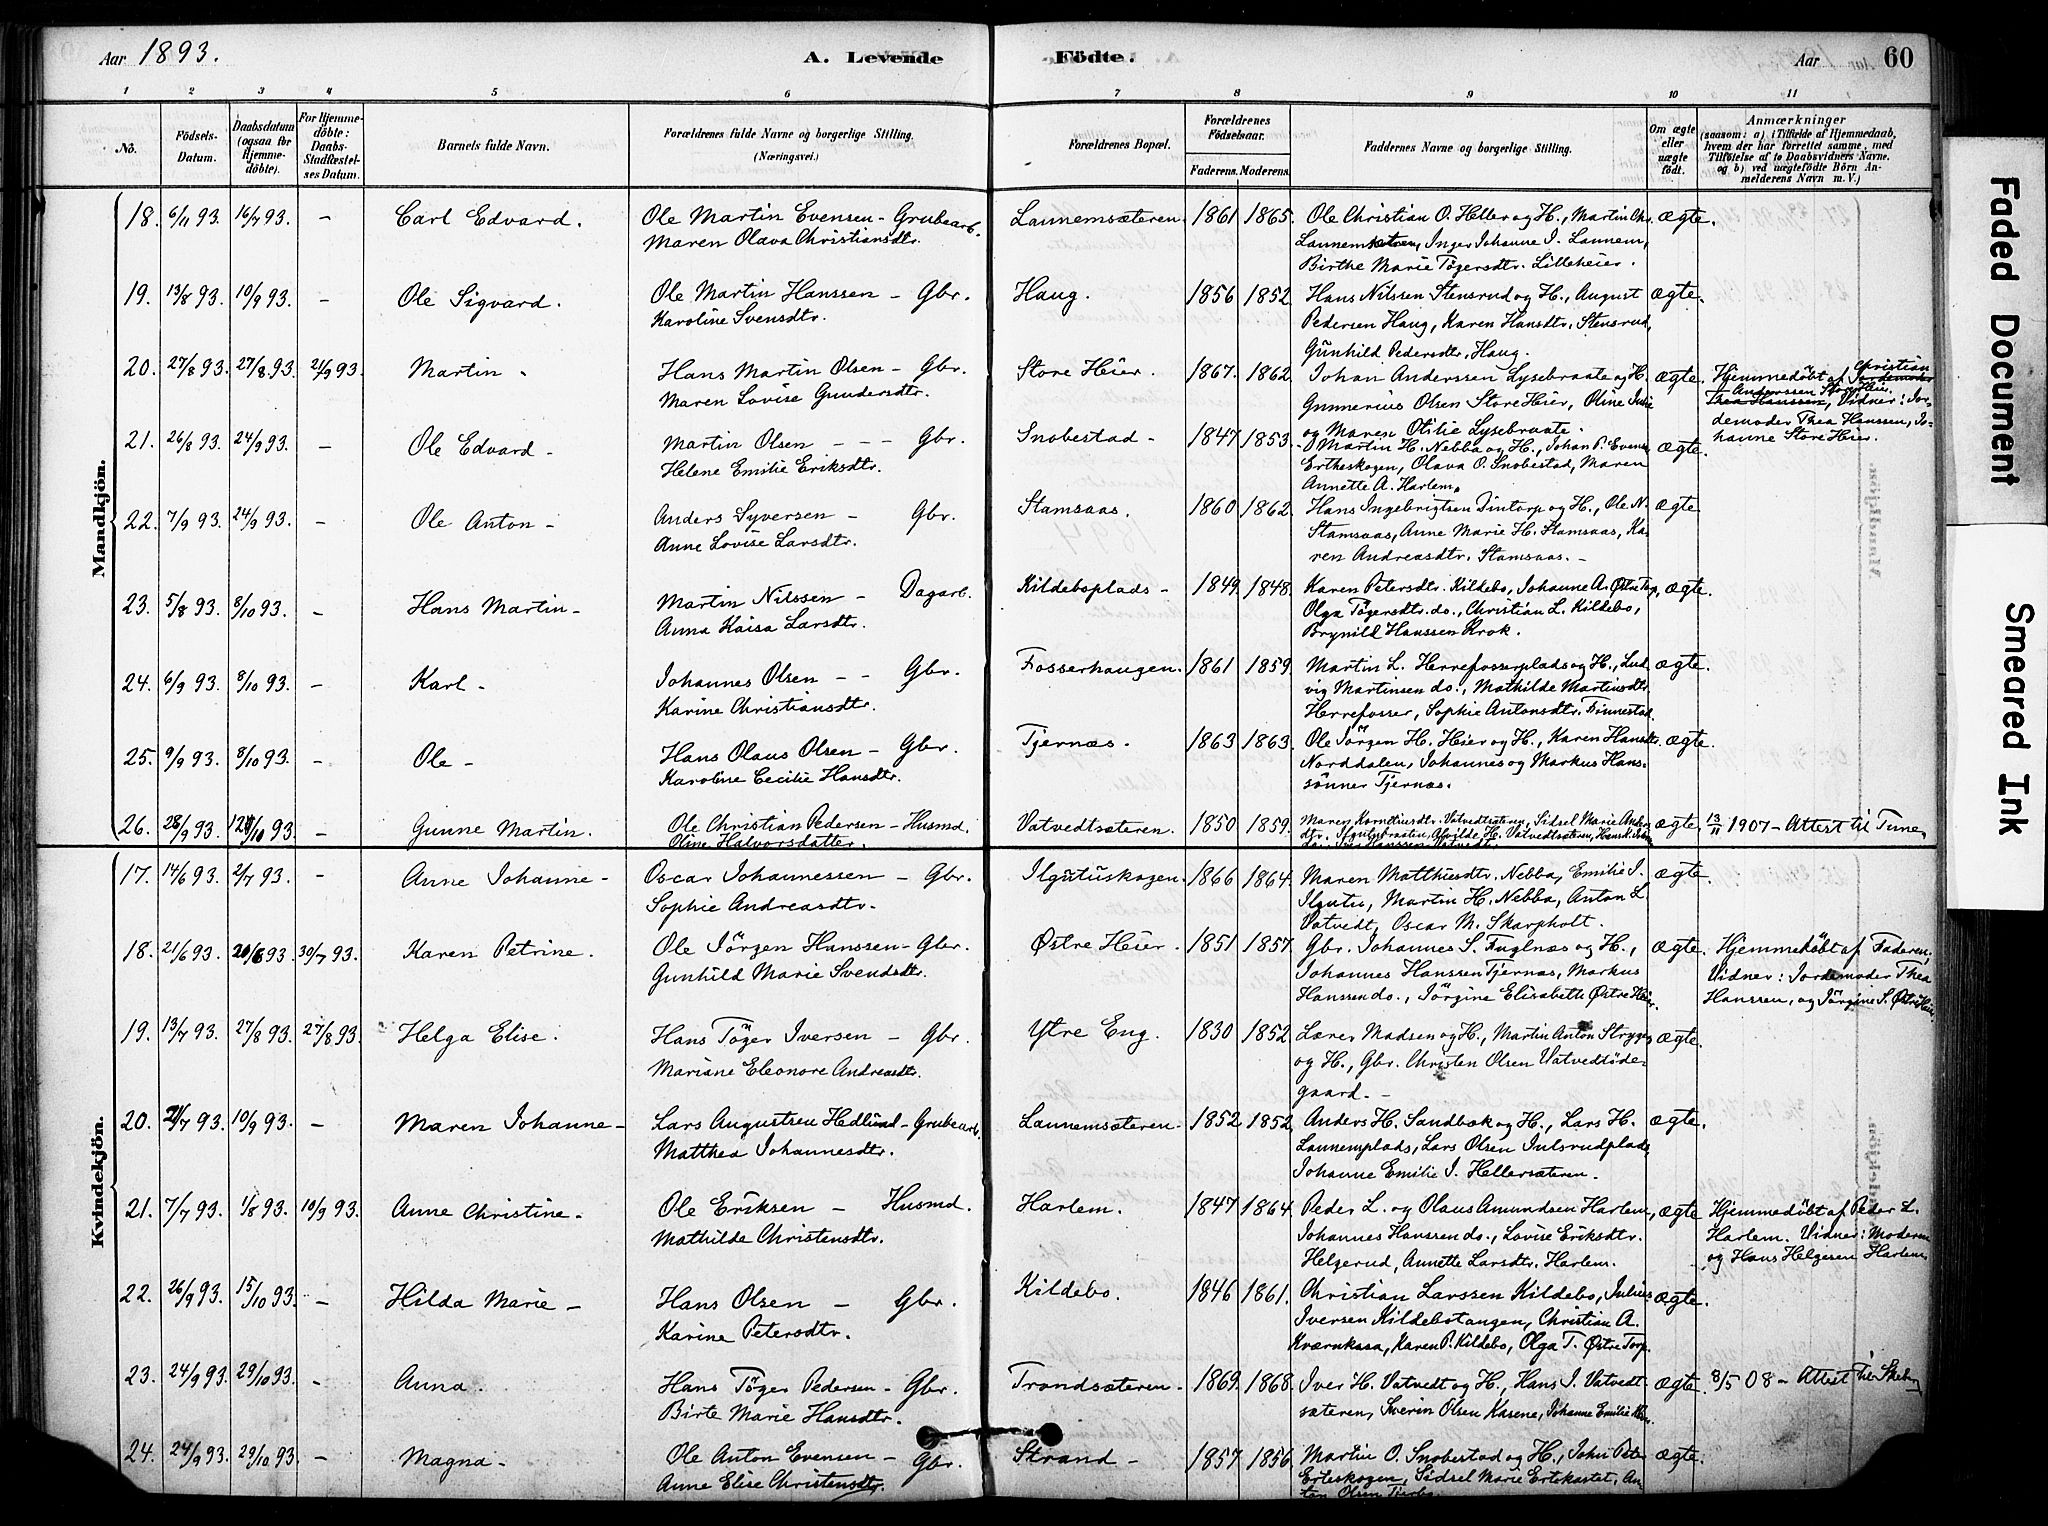 Aar 1893. A. Levende Födte. Aar 60
1 2 3 4 5 6 7 8 9 10 11
No. Födsels-Datum. Daabsdatum (ogsaa for Hjemmedöbte). For Hjemmedöbte: Daabs-Stadfæstelses Datum. Barnets fulde Navn. Forældrenes fulde Navne og borgerlige Stilling. (Næringsvei.) Forældrenes Bopæl. Forældrenes Födselsaar. Faderens. Moderens. Faddernes Navne og borgerlige Stilling. Om ægte eller uægte födt. Anmærkninger (saasom: a) i Tilfælde af Hjemmedaab, hvem der har forrettet samme, med Tilföielse af to Daabsvidners Navne, og b) ved uægtefödte Börn Anmelderens Navn m. V.)
Mandkjön.
18. 6/11 93. 16/7 93. - Carl Edvard. Ole Martin Evensen - Grubearb. Lannemsæteren. 1861 1865. Ole Christian O. Heller og H., Martin Chr. ægte.
Maren Olava Christiansdtr. Lannemsætren, Inger Johanne I. Lannem,
Birthe Marie Tögersdtr. Lilleheier.
19. 13/8 93. 10/9 93. - Ole Sigvard. Ole Martin Hanssen - Gbr. Haug. 1856 1852. Hans Nilssen Stensrud og H., August ægte.
Karoline Svensdtr. Pedersen Haug, Karen Hansdtr. Stensrud,
Gunhild Pedersdtr. Haug.
20. 27/8 93. 27/8 93. 24/9 93. Martin - Hans Martin Olsen - Gbr. Store Heier. 1867. 1862. Johan Anderssen Lysebraate og H. ægte. Hjemmedöbt af Jordemoder Christian
Maren Lovise Gundersdtr. Gunnerius Olsen Store Heier, Oline Julie Thea Hanssen, Anderssen Store Heier. Vidner: Jor-
og Maren Otilie Lysebraate. demoder Thea Hanssen, Jo-
hanne Store Heier.
21. 26/8 93. 24/9 93. - Ole Edvard - Martin Olsen - - - Gbr. Snobestad - 1847 1853. Martin H. Nebba og H., Johan P. Evensen ægte.
Helene Emilie Eriksdtr. Ertheskogen, Olava O. Snobestad, Maren
Annette A. Harlem.
22. 7/9 93. 24/9 93. - Ole Anton - Anders Syversen - Gbr. Stamsaas. 1860 1862. Hans Ingebrigtsen Tintorp og H., Ole N. ægte.
Anne Lovise Larsdtr. Stamsaas, Anne Marie H. Stamsaas, Ka-
ren Andreasdtr. Stamsaas. -
23. 5/8 93. 8/10 93. - Hans Martin - Martin Nilssen - Dagarb. Kildeboplads - 1849. 1848. Karen Petersdtr. Kildebo, Johanne A. Östre Torp, ægte.
Anna Kaisa Larsdtr. Olga Tögersdtr. do., Christian L. Kildebo,
Brynild Hanssen Krok.
24. 6/9 93. 8/10 93. - Karl - Johannes Olsen - - Gbr. Fosserhaugen. 1861 1859. Martin L. Herrefosserplads og H., Lud- ægte.
Karine Christiansdtr. vig Martinsen do., Mathilde Martinsdtr.
Herrefosser, Sophie Antonsdtr. Finnestad.
25. 9/9 93. 8/10 93. - Ole - Hans Olaus Olsen - Gbr. Tjernæs. 1863 1863. Ole Jörgen H. Heier og H., Karen Hansdtr. ægte.
Karoline Cecilie Hansdtr. Norddalen, Johannes og Markus Hans-
sönner Tjernæs.
26. 28/9 93. /10 93. - Gunne Martin. Ole Christian Pedersen - Husmd. Vatvedtsæteren. 1850 1859. Maren Korneliusdtr. Vatvedtsæteren, Sidsel Marie ægte. 13/11 1907 - Attest til Tune.
Oline Halvorsdatter. H. Vatvedtsæteren,
Hanssen Vatvedt.
Kvindekjön.
17. 14/6 93. 2/7 93. - Anne Johanne - Oscar Johannessen - Gbr. Ilgutuskogen. 1866 1864. Maren Matthisdtr. Nebba, Emilie I. ægte.
Sophie Andreasdtr. Ilgutu, Martin H. Nebba, Anton L.
Vatvedt, Oscar M. Skarpholt.
18. 21/6 93. /8 93. 30/7 93. Karen Petrine. Ole Jörgen Hanssen - Gbr. Østre Heier. 1851 1857. Gbr. Johannes S. Fuglnæs og H., ægte. Hjemmedöbt af Faderen,
Gunhild Marie Svendsdtr. Johannes Hanssen Tjernæs, Markus Vidner: Jordemoder Thea
Hanssen do., Jörgine Elisabeth Østre Heier. Hanssen, og Jörgine S. Østre Heier.
19. 13/7 93. 27/8 93. 27/8 93. Helga Elise. Hans Töger Iversen - Gbr. Ytre Eng. 1830 1852. Lærer Madsen og H., Martin Anton Strygen ægte.
Mariane Eleonore Andreasdtr. og H., Gbr. Christen Olsen Vatvedtöde-
gaard. -
20. 21/7 93. 10/9 93. - Maren Johanne - Lars Augustsen Hedlund - Grubearb. Lannemsæteren - 1852 1852. Anders H. Sandbæk og H., Lars H. ægte.
Matthea Johannesdtr. Lannemplads, Lars Olsen Julsrudplads,
Johanne Emilie I. Hellersæteren.
21. 7/7 93. 1/8 93. 10/9 93. Anne Christine - Ole Eriksen - Husmd. Harlem. 1847 1864. Peder L. og Olaus Amundsen Harlem, ægte. Hjemmedöbt af Peder L.
Mathilde Christensdtr. Johannes Hanssen do., Lovise Eriksdtr. Harlem. Vidner: Moderen
Helgerud, Annette Larsdtr. Harlem. og Hans Helgesen Harlem.
22. 26/9 93. 15/10 93. - Hilda Marie - Hans Olsen - Gbr. Kildebo. 1846 1861. Christian Larssen Kildebo, Julius ægte.
Karine Petersdtr. Iversen Kildebotangen, Christian A.
Kværnkasa, Karen P. Kildebo, Olga T. Østre Torp.
23. 24/9 93. 29/10 93. - Anna. Hans Töger Pedersen - Gbr. Trondsæteren - 1869. 1868. Iver H. Vatvedt og H., Hans I. Vatvedt- ægte. 8/5 08 - Attest til
Birte Marie Hansdtr. sæteren, Sverin Olsen Kasene, Johanne Emilie
24. 24/9 93. 29/10 93. - Magna - Ole Anton Evensen - Gbr. Strand - 1857 1856. Martin O. Snobestad og H., John Peter ægte.
Anne Elise Christensdtr. Erteskogen, Sidsel Marie Ertekastet, An-
ton Olsen
Faded Document
Smeared Ink